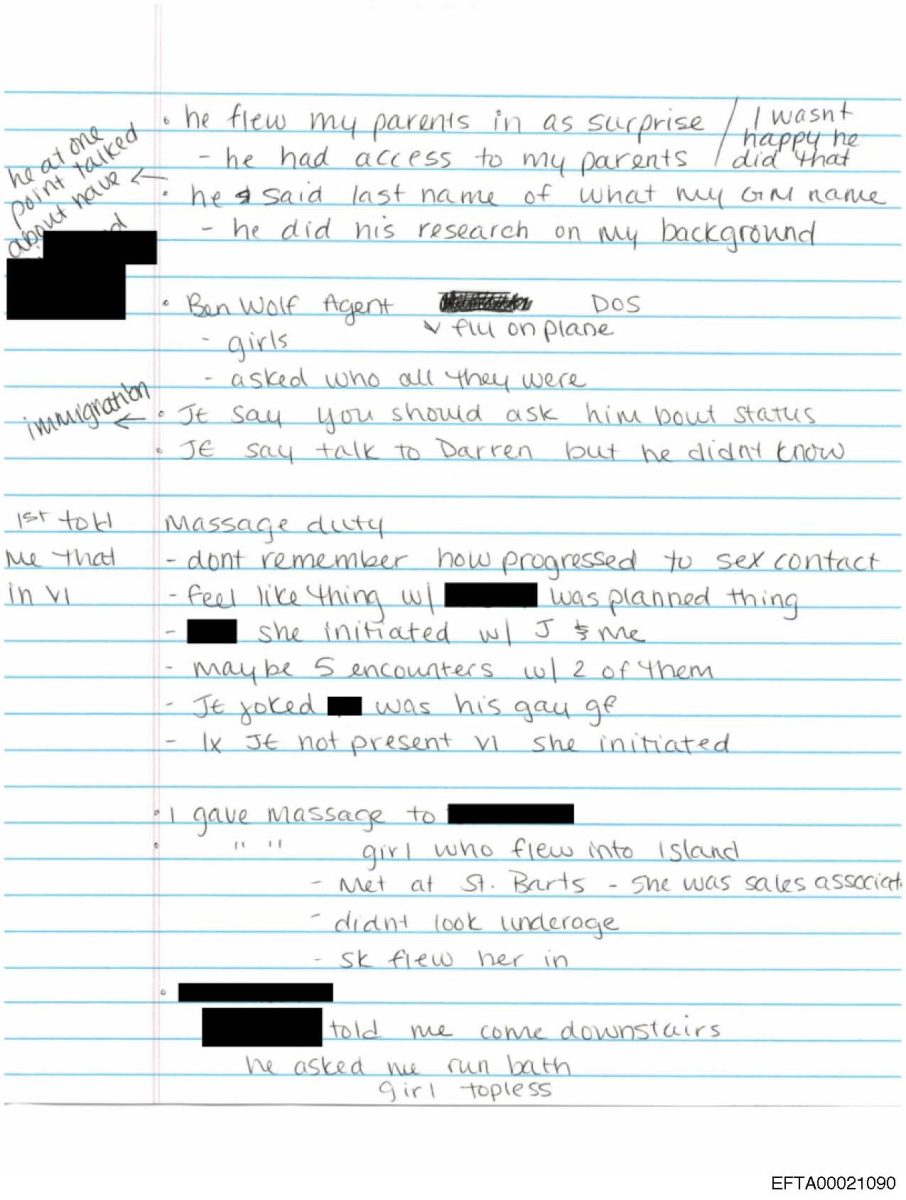 • he flew my parents in as surprise / I wasnt happy he did that
- he had access to my parents
he at one point talked about have ←
• he said last name of what my GM name
- he did his research on my background
• Ben Wolf Agent DOS
✓ flu on plane
- girls
- asked who all they were
immigration ←
• JE say you should ask him bout status
• JE say talk to Darren but he didnt know
1st told me that in VI
Massage duty
- dont remember how progressed to sex contact
- feel like thing w/ was planned thing
- she initiated w/ J & me
- maybe 5 encounters w/ 2 of them
- JE joked was his gay gf
- 1x JE not present VI she initiated
• I gave massage to
• " " girl who flew into Island
- Met at St. Barts - she was sales associat
- didnt look underage
- SK flew her in
•
told me come downstairs
he asked me run bath
girl topless
EFTA00021090